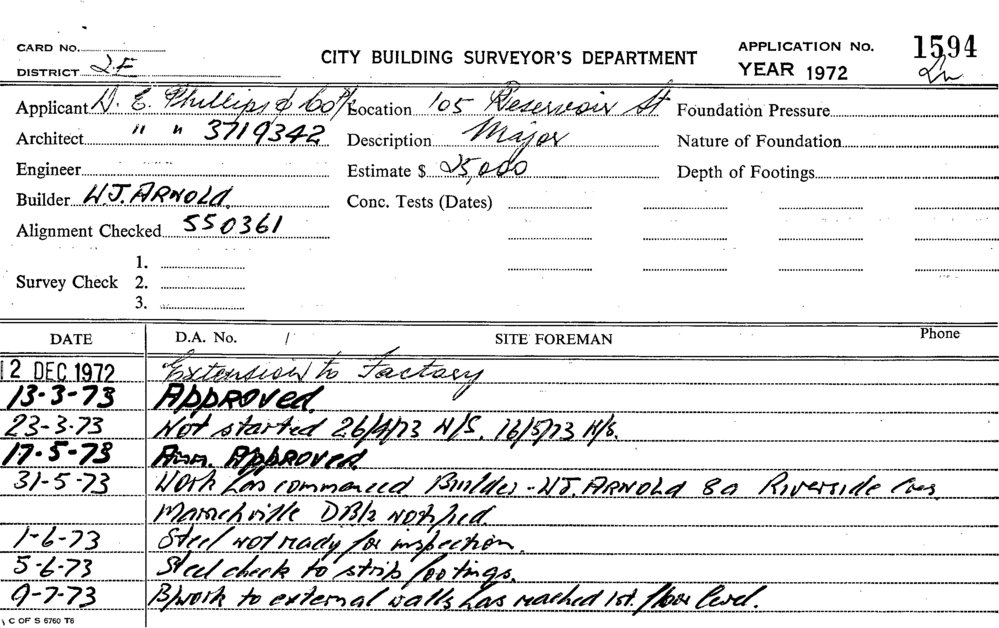 CARD No.
CITY BUILDING SURVEYOR'S DEPARTMENT
APPLICATION No. 1594
DISTRICT 2F
YEAR 1972
Applicant D. E. Phillips & Co P/L
Location 105 Reservoir St
Foundation Pressure
Architect " " 3719342
Description Major
Nature of Foundation
Engineer
Estimate $ 25,000
Depth of Footings
Builder W.J. ARNOLD.
Conc. Tests (Dates)
Alignment Checked 550361
Survey Check
1.
2.
3.
DATE D.A. No. / SITE FOREMAN Phone
12 DEC 1972 Extension to Factory
13-3-73 APPROVED.
23-3-73 Not started 26/4/73 N/S. 16/5/73 N/S.
17-5-73 Am. APPROVED.
31-5-73 Work has commenced Builder - WJ. ARNOLD 8a Riverside Cres
Marrickville DB/2 notified.
1-6-73 Steel not ready for inspection.
5-6-73 Steel check to strip footings.
9-7-73 B/work to external walls has reached 1st. floor level.
C OF S 6760 T6